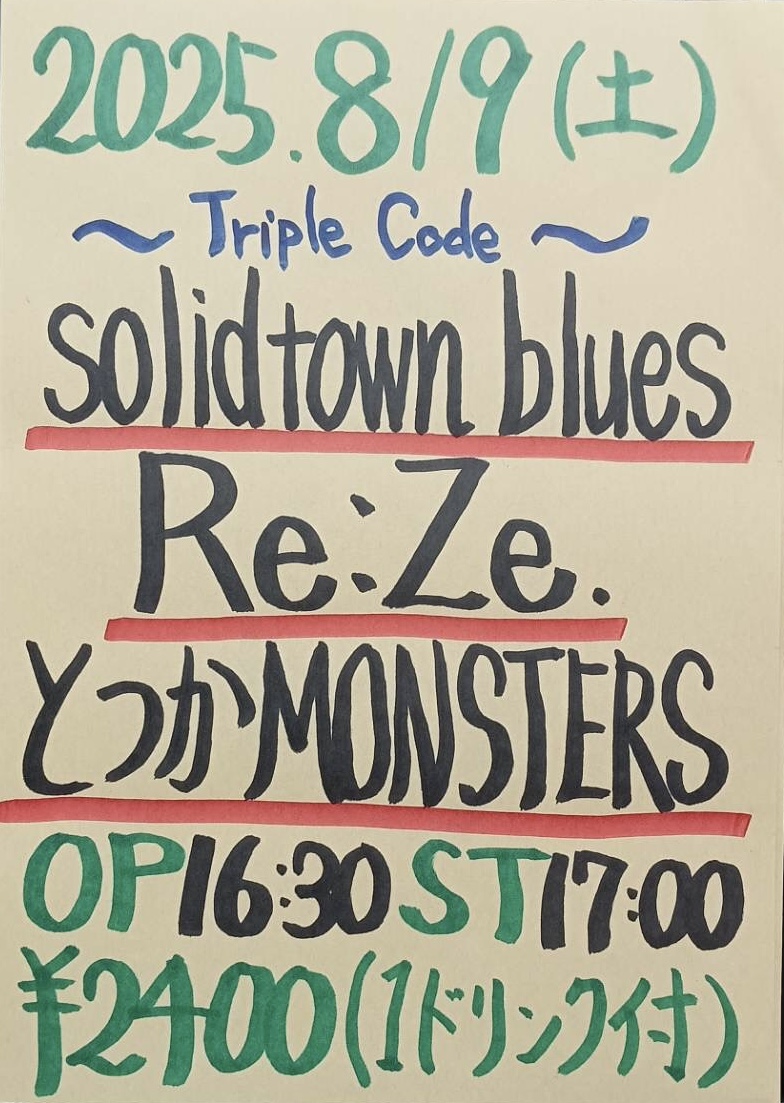 2025.8/9(土)
～Triple Code～
solidtown blues
Re:Ze.
とつかMONSTERS
OP16:30 ST17:00
¥2400(1ドリンク付)